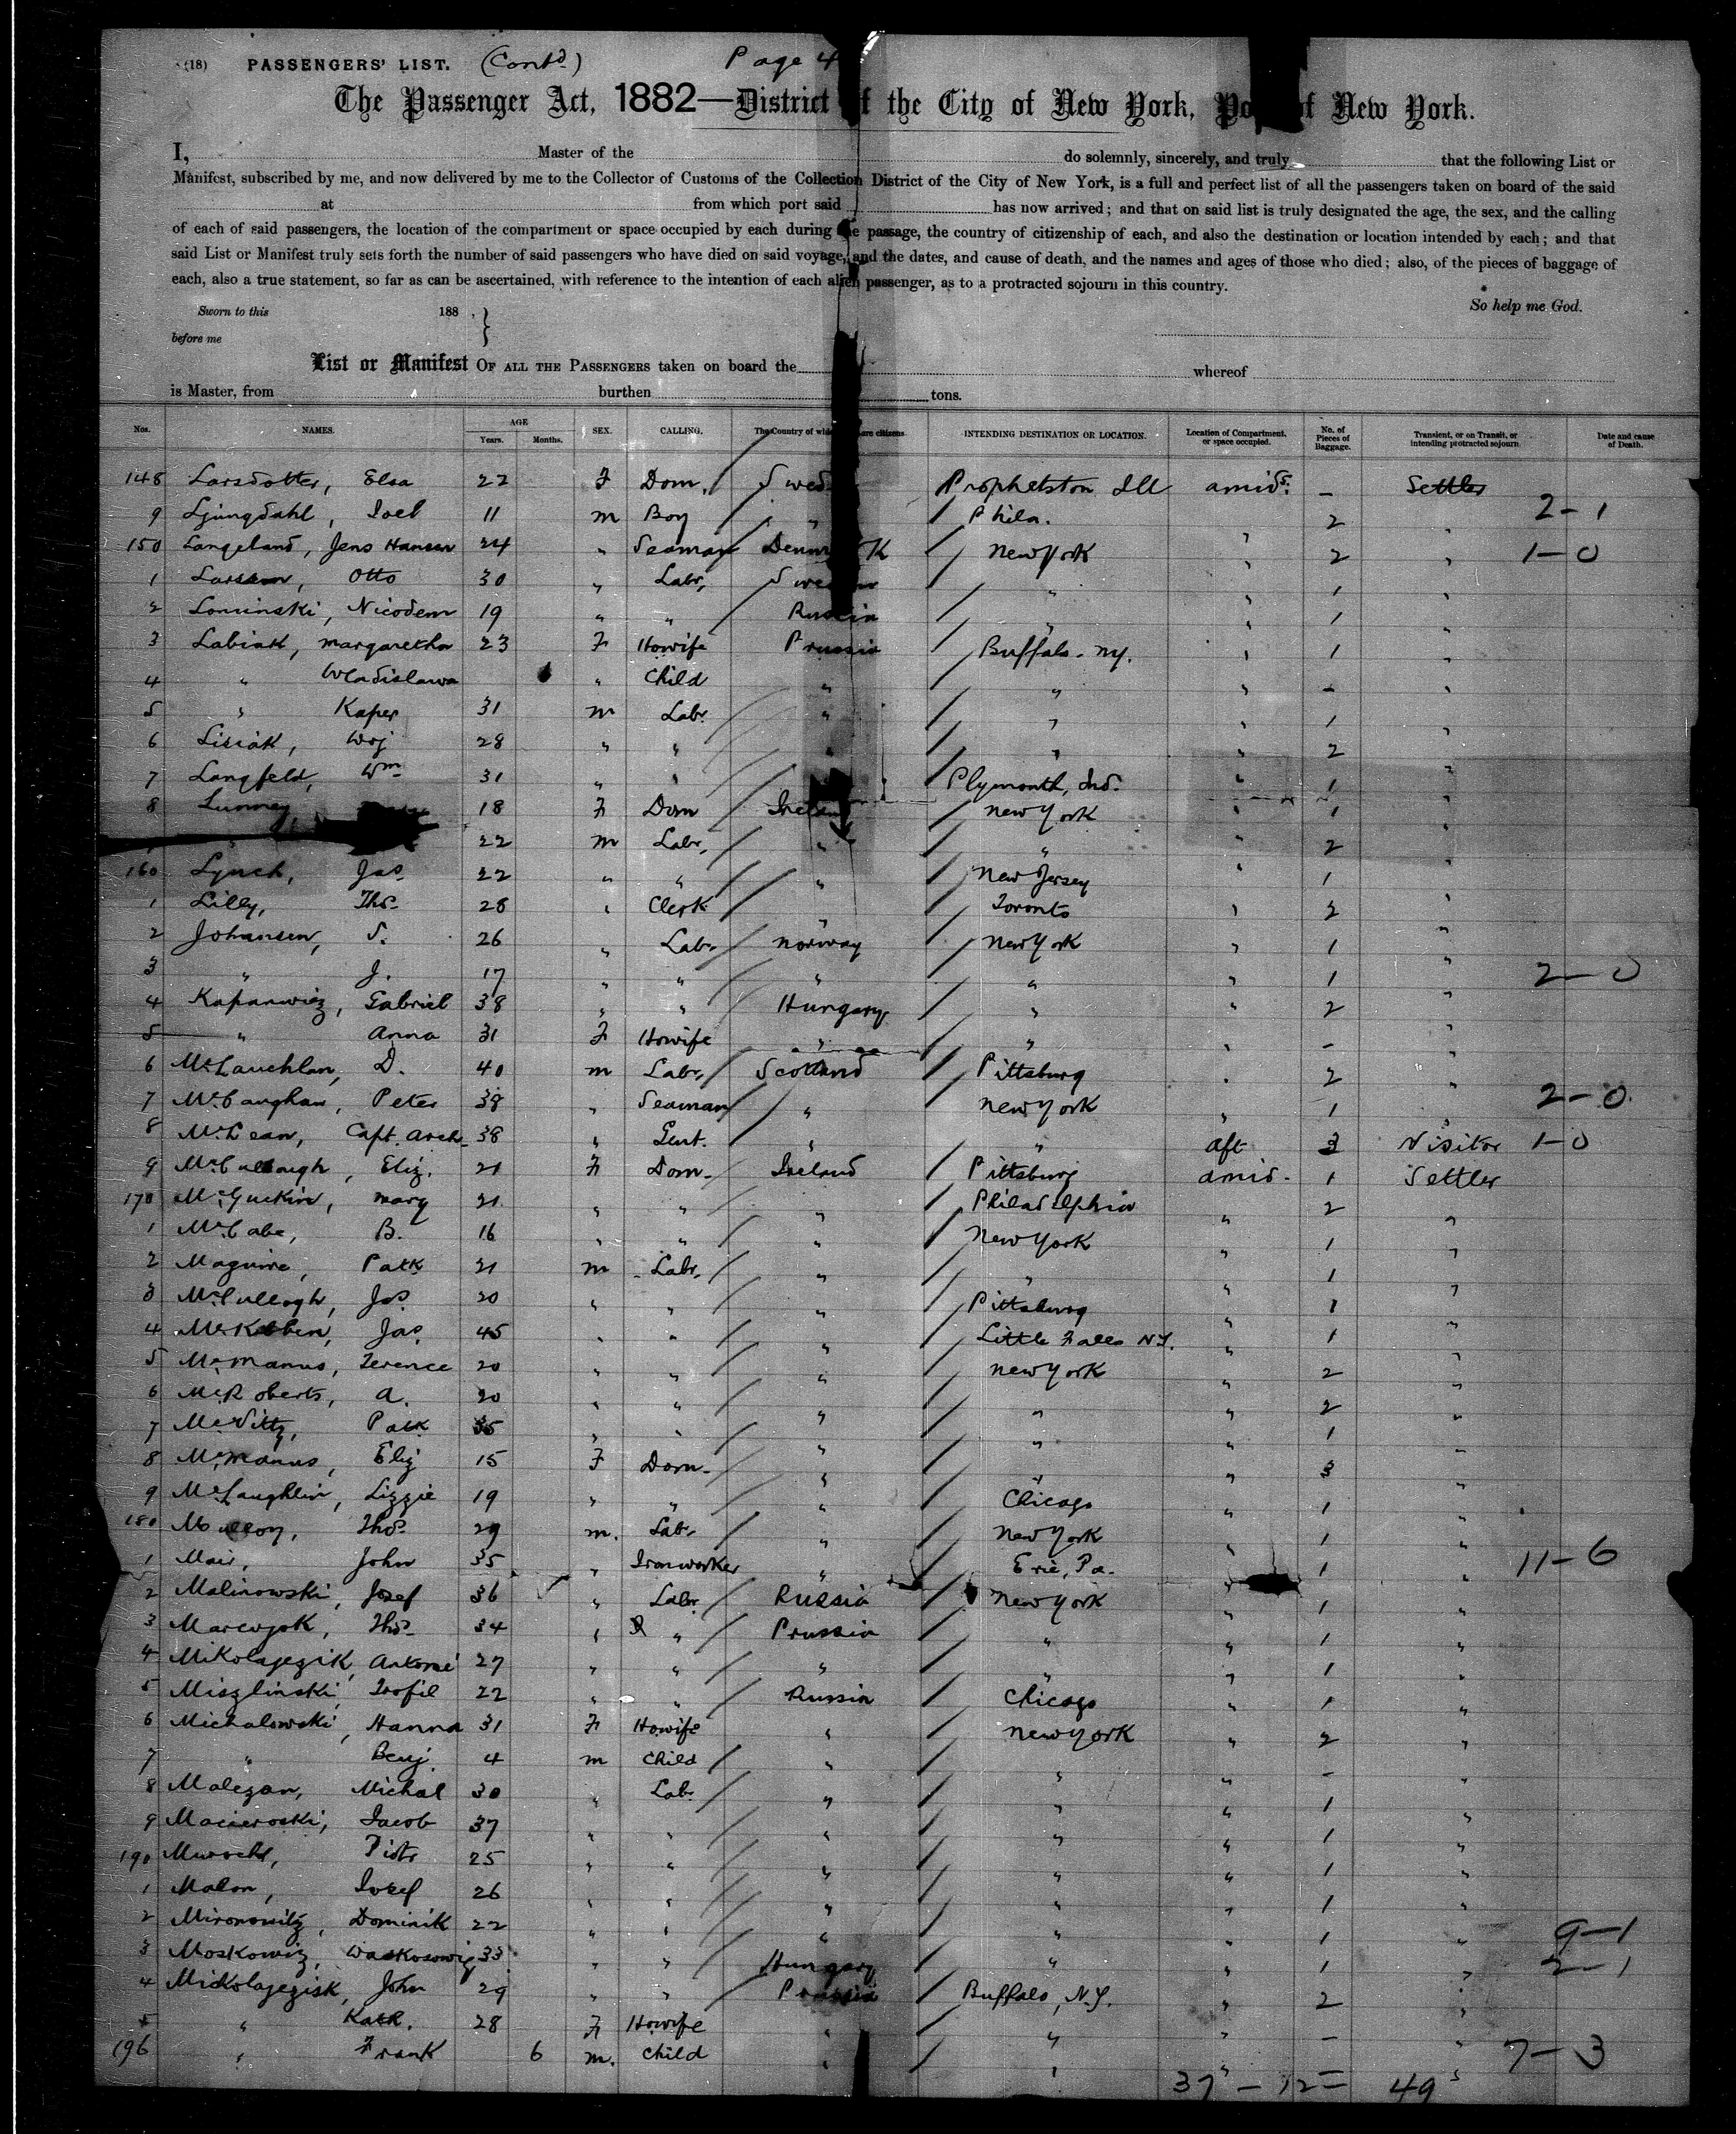 (18) PASSENGERS' LIST. (Contd) Page 4
The Passenger Act, 1882—District of the City of New York, Port of New York.
I, Master of the do solemnly, sincerely, and truly that the following List or
Manifest, subscribed by me, and now delivered by me to the Collector of Customs of the Collection District of the City of New York, is a full and perfect list of all the passengers taken on board of the said
at from which port said has now arrived; and that on said list is truly designated the age, the sex, and the calling
of each of said passengers, the location of the compartment or space occupied by each during the passage, the country of citizenship of each, and also the destination or location intended by each; and that
said List or Manifest truly sets forth the number of said passengers who have died on said voyage, and the dates, and cause of death, and the names and ages of those who died; also, of the pieces of baggage of
each, also a true statement, so far as can be ascertained, with reference to the intention of each alien passenger, as to a protracted sojourn in this country.
So help me God.
Sworn to this 188 ,
before me
List or Manifest OF ALL THE PASSENGERS taken on board the whereof
is Master, from burthen tons.
Nos. NAMES. AGE Years. Months. SEX. CALLING. The Country of which are citizens. INTENDING DESTINATION OR LOCATION. Location of Compartment, or space occupied. No. of Pieces of Baggage. Transient, or on Transit, or intending protracted sojourn. Date and cause of Death.
148 Larsdotter, Elsa 22 F Dom. Swed Prophetston Ill amids. - Settler
9 Ljungdahl, Joel 11 m Boy " Phila. " 2 " 2-1
150 Langeland, Jens Hansen 24 " Seaman Denmark New York " 2 " 1-0
1 Larsson, Otto 30 " Labr. Sweden " " 1 "
2 Lominski, Nicodem 19 " " Russia " " 1 "
3 Labiak, Margaretha 23 F Howife Prussia Buffalo. NY. " 1 "
4 " Wladislawa " Child " " " - "
5 " Kaper 31 m Labr. " " " 1 "
6 Lisiak, Woj 28 " " " " " 2 "
7 Langfeld, Wm 31 " " Plymouth, Ind. " 1 "
8 Lunney 18 F Dom Ireland New York " 1 "
" 22 m Labr. " " " 2 "
160 Lynch, Jas. 22 " " " New Jersey " 1 "
1 Lilly, Thos. 28 " Clerk " Toronto " 2 "
2 Johansen, S. 26 " Labr. Norway New York " 1 "
3 " J. 17 " " " " " 1 " 2-0
4 Kapanwiez, Gabriel 38 " " Hungary " " 2 "
5 " Anna 31 F Howife " " " - "
6 McLauchlan, D. 40 m Labr. Scotland Pittsburg " 2 "
7 McCaughan, Peter 38 " Seaman " New York " 1 " 2-0
8 McLean, Capt. Arch. 38 " Gent. " " aft 3 Visitor 1-0
9 McCullough, Eliz. 21 F Dom. Ireland Pittsburg amid. 1 Settler
170 McGuckin, Mary 21 " " " Philadelphia " 2 "
1 McCabe, B. 16 " " " New York " 1 "
2 Maguire, Patk 21 m Labr. " " " 1 "
3 McCullogh, Jas. 20 " " " Pittsburg " 1 "
4 McKibben, Jas. 45 " " " Little Falls N.Y. " 1 "
5 McManus, Terence 20 " " " New York " 2 "
6 McRoberts, A. 20 " " " " " 2 "
7 McVitty, Patk 35 " " " " " 1 "
8 McManus, Eliz 15 F Dom. " " " 3 "
9 McLaughlin, Lizzie 19 " " " Chicago " 1 "
180 Mulloy, Thos. 29 m. Labr. " New York " 1 "
1 Mair, John 35 " Ironworker " Erie, Pa. " 1 " 11-6
2 Malinowski, Josef 36 " Labr. Russia New York " 1 "
3 Marcujok, Thos. 34 " " Prussia " " 1 "
4 Mikolajezik, Antoni 27 " " " " " 1 "
5 Miszlinski, Teofil 22 " " Russia Chicago " 1 "
6 Michalowski, Hanna 31 F Howife " New York " 2 "
7 " Benj. 4 m Child " " " - "
8 Malezan, Michal 30 " Lab. " " " 1 "
9 Macieroski, Jacob 37 " " " " " 1 "
190 Piotr 25 " " " " " 1 "
1 Malon, Josef 26 " " " " " 1 "
2 Mironowitz, Dominik 22 " " " " " 1 " 9-1
3 Moskowiz, Waskosowig 33 " " Hungary " " 1 " 2-1
4 Mickolajezisk, John 29 " " Prussia Buffalo, N.Y. " 2 "
5 " Kath. 28 F Howife " " " - "
196 " Frank 6 m. Child " " " - " 7-3
37 - 12 = 49